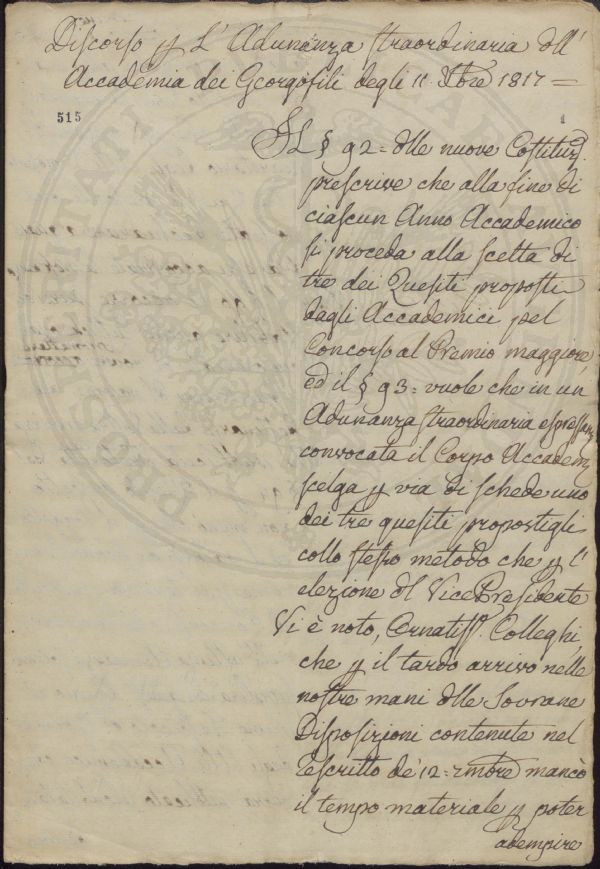 Discorso p L'Adunanza straordinaria dll'
Accademia dei Georgofili degli 11 Xbre 1817 =
515
1
Il § 92 = dlle nuove Costituz.
prescrive che alla fine di
ciascun Anno Accademico
si proceda alla scelta di
tre dei Quesiti proposti
dagli Accademici pel
Concorso al Premio maggiore,
ed il § 93 = vuole che in un
Adunanza straordinaria espressam.
convocata il Corpo Accadem.
scelga p via di schede uno
dei tre quesiti propostigli
collo stesso metodo che p l'
elezione dl Vice Presidente
Vi è noto, Ornatiss. Colleghi,
che p il tardo arrivo nelle
nostre mani dlle Sovrane
Disposizioni contenute nel
Rescritto de' 12 = 7mbre mancò
il tempo materiale p poter
adempire
PROSPERITATI